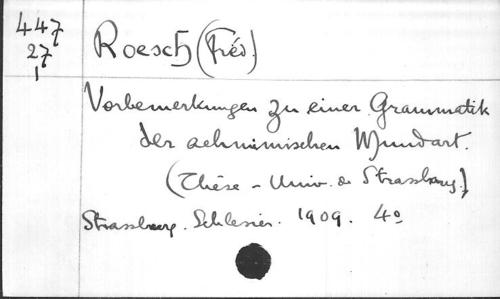 447
27
1
Roesch (Fréd)
Vorbemerkungen zu einer Grammatik
der achmimischen Mundart.
(Thèse - Univ. de Strassbourg.)
Strassburg. Schlesier. 1909. 4º